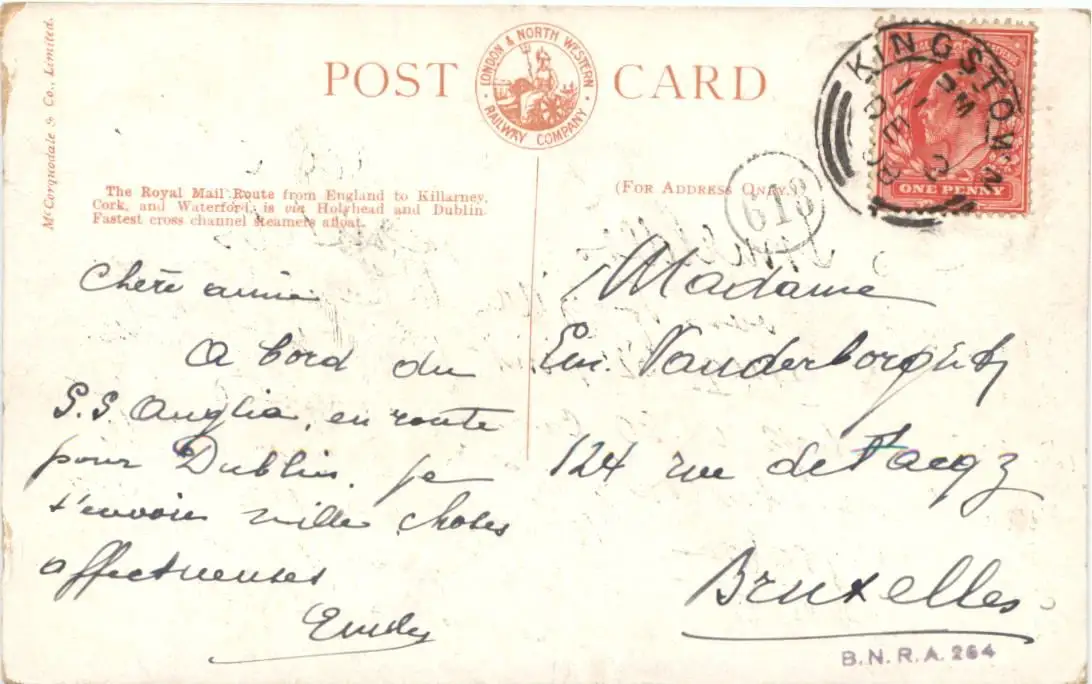 McCorquodale & Co., Limited.
POST CARD
LONDON & NORTH WESTERN
RAILWAY COMPANY
KINGSTOWN
ONE PENNY
The Royal Mail Route from England to Killarney,
Cork, and Waterford, is via Holyhead and Dublin.
Fastest cross channel steamers afloat.
(FOR ADDRESS ONLY.)
613
Chère amie
A bord du
S.S. Anglia, en route
pour Dublin, je
t'envoie mille choses
affectueuses
Emily
Madame
Em. Vanderborght
124 rue de
Bruxelles
B.N.R.A. 264